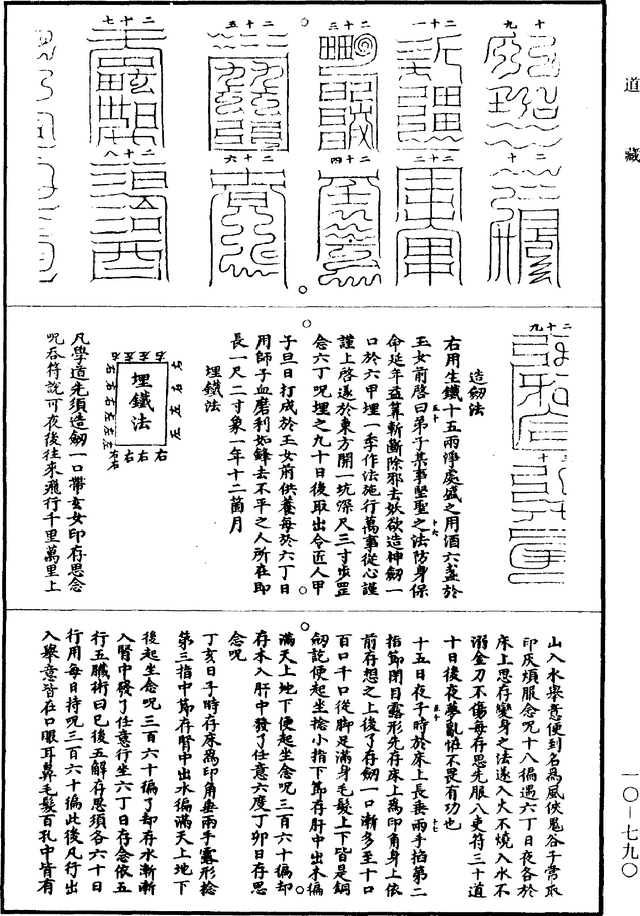 道藏
十九
二十
二十一
二十二
二十三
二十四
二十五
二十六
二十七
二十八
二十九
造劒法
右用生鐵十五兩淨處盛之用酒六盞於
玉女前啓曰弟子某事堅聖之法防身保
命延年益筭斬斷除邪去妖欲造神劒一
口於六甲埋一季作法施行萬事從心謹
謹上啓遂於東方開一坑深尺三寸步罡
念六丁呪埋之九十日後取出令匠人甲
子旦日打成於玉女前供養每於六丁日
用師子血磨利如鋒去不平之人所在即
長一尺二寸象一年十二箇月
埋鐵法
埋鐵法
凡學道先須造劒一口帶玄女印存思念
呪吞符說可夜後往來飛行千里萬里上
山入水舉意便到名為風俠鬼谷子常取
印灰煩服念呪十八徧遇六丁日夜各於
床上思存變身之法遂入火不燒入水不
溺金刀不傷每存思先服八吏符三十道
十日後夜夢亂恠不畏有功也
十五日夜子時於床上長垂兩手掐第二
指節閉目露形先存床上為印角身上依
前存想之上後了存劒一口漸多至十口
百口千口從脚足滿身毛髮上下皆是銅
劒訖便起坐捻小指下節存肝中出木徧
滿天上地下便起坐念呪三百六十徧却
存木入肝中發了任意六度丁卯日存思
念呪
丁亥日子時存床為印角垂兩手露形捻
第三指中節存腎中出水徧滿天上地下
後起坐念呪三百六十徧了却存水漸漸
入腎中發了任意行坐六丁日存念依五
行五臟術曰已後五解存思須各六十日
行用每日持呪三百六十徧此後凡行出
入舉意皆在口眼耳鼻毛髮百孔中皆有
一〇—七九〇